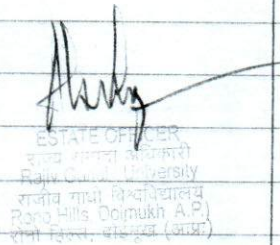 ESTATE OFFICER
Rajiv Gandhi University
राजीव गांधी विश्वविद्यालय
Rono Hills Doimukh A.P.)
रोनो हिल्स, दोइमुख (अ.प्र.)